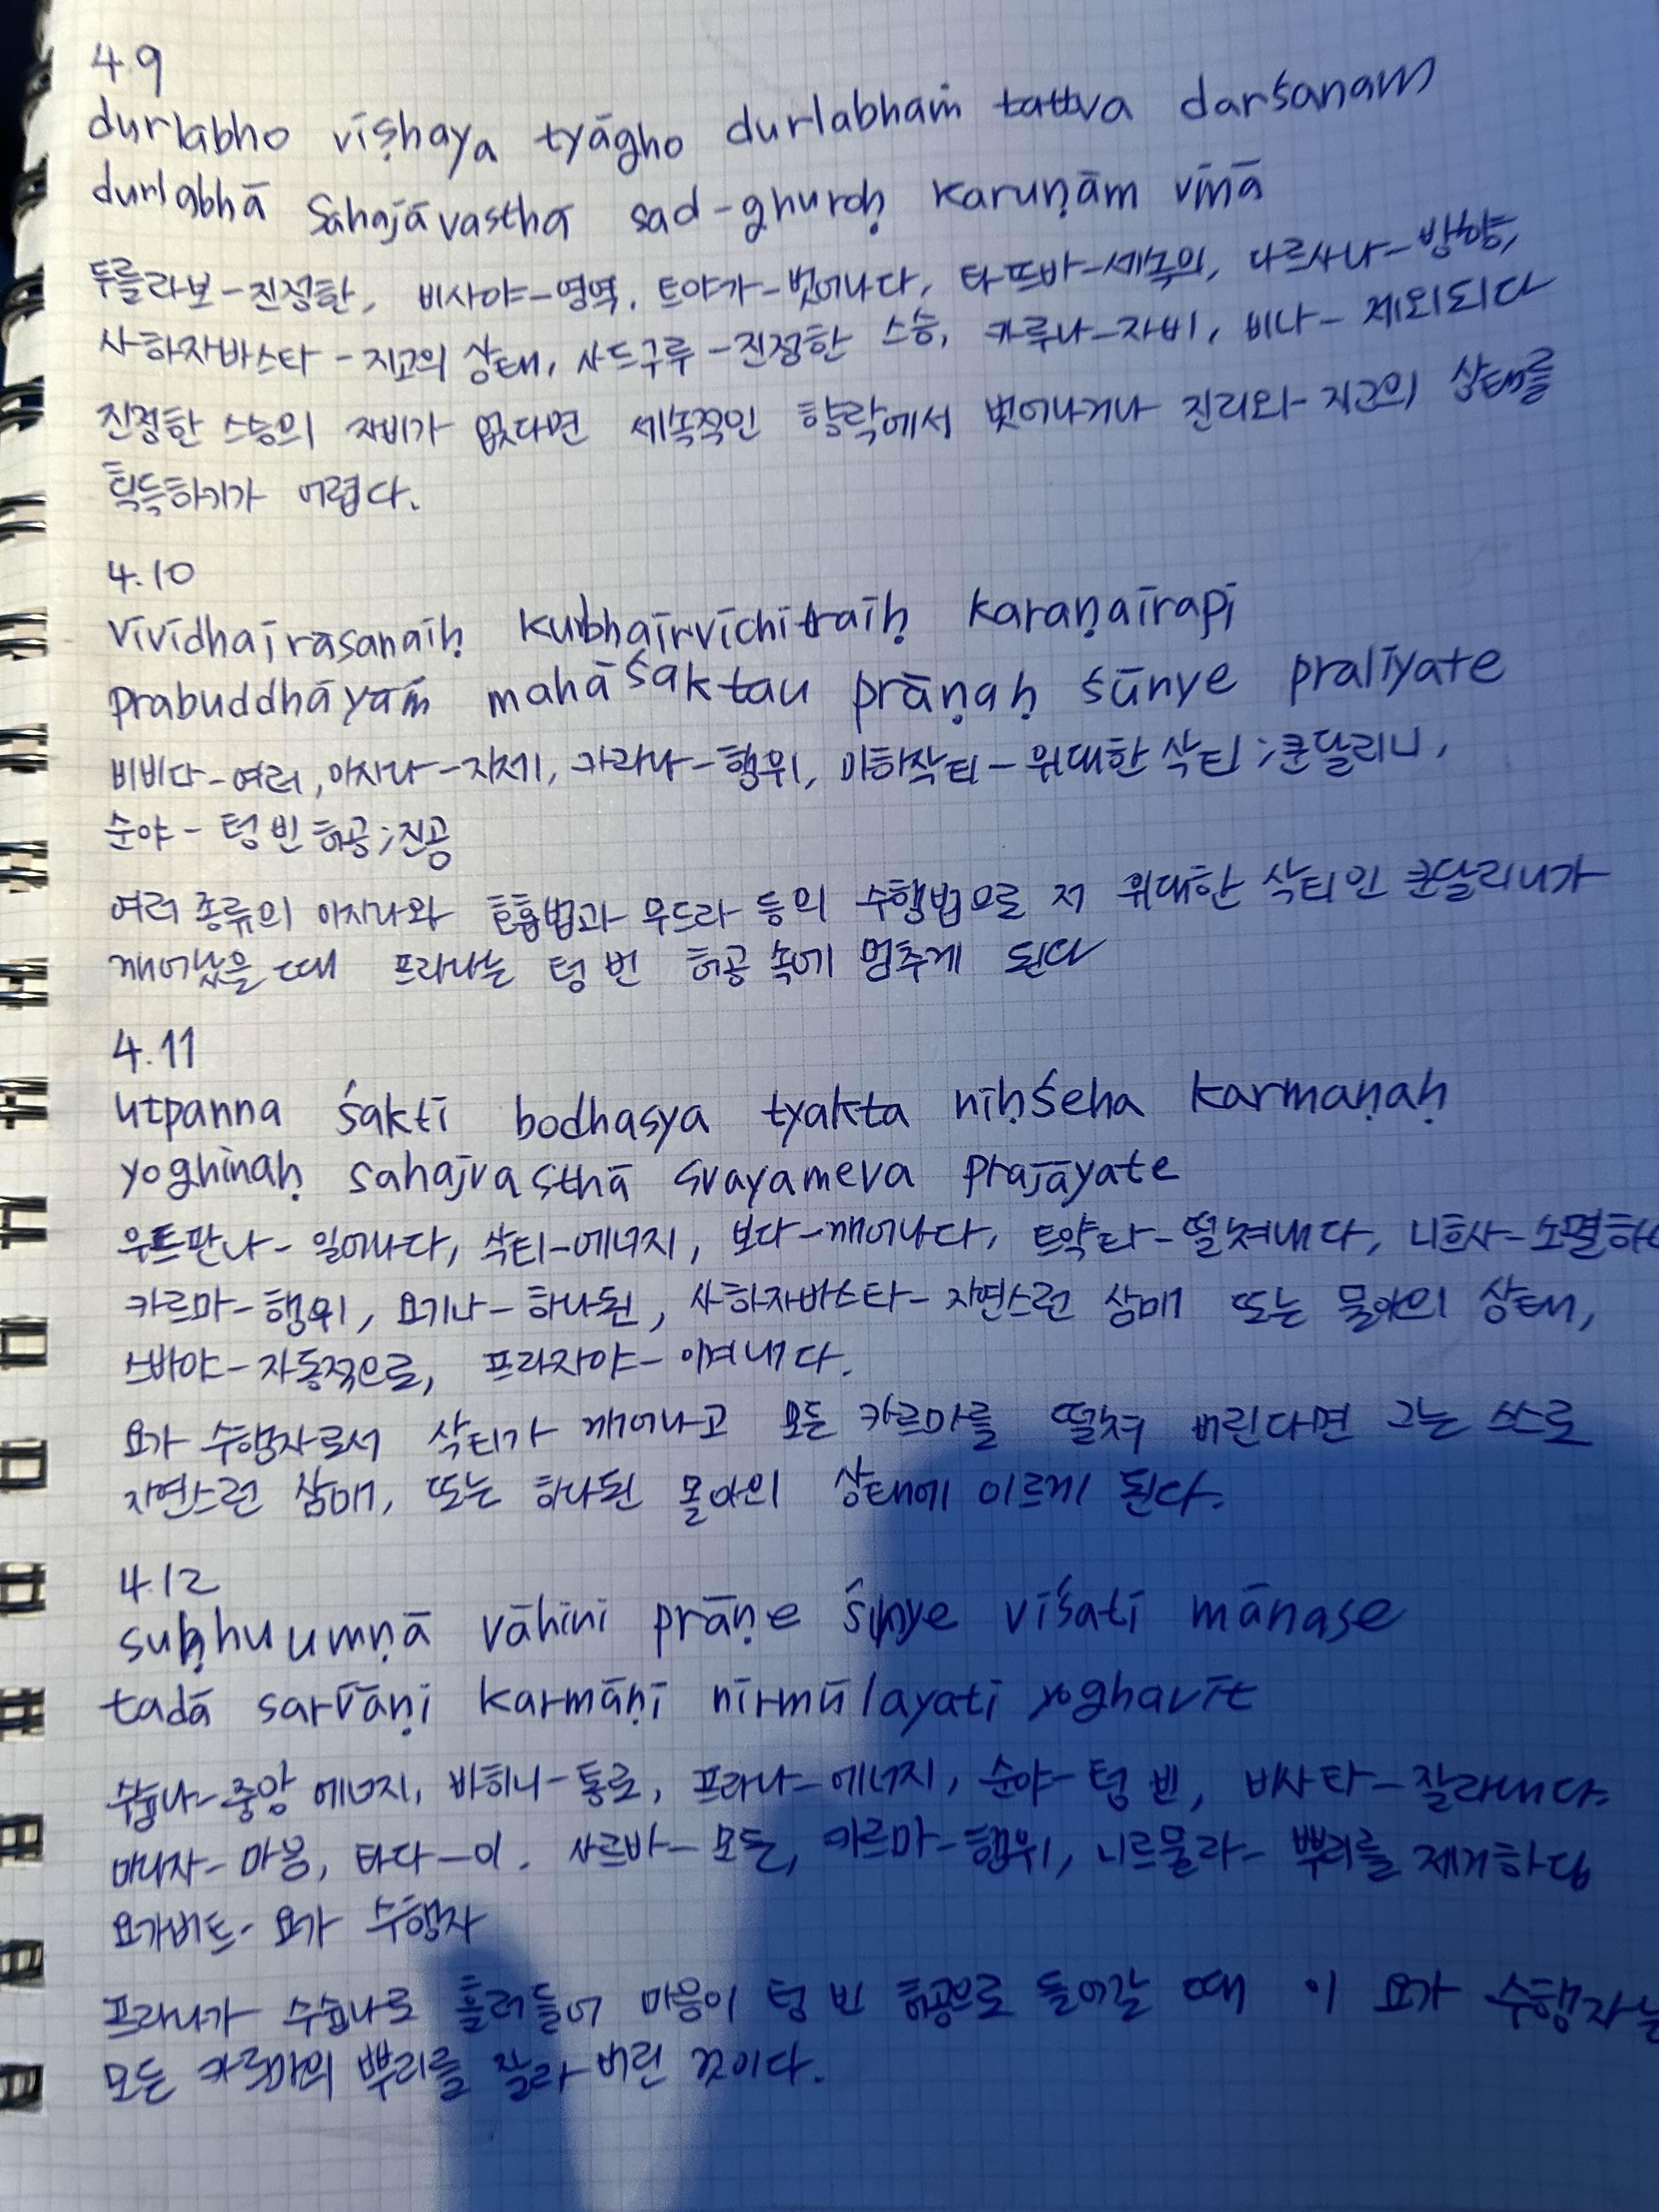 4.9
durlabho viṣhaya tyāgho durlabhaṁ tattva darśanam
durlabhā Sahajāvasthā sad-ghuroḥ karuṇām vinā
두를라보-진정한, 비사야-영역, 트야가-벗어나다, 타뜨바-세속의, 다르사나-방향,
사하자바스타-지고의 상태, 사드구루-진정한 스승, 카루나-자비, 비나-제외되다
진정한 스승의 자비가 없다면 세속적인 향락에서 벗어나거나 진리와 지고의 상태를
획득하기가 어렵다.
4.10
vividhairāsanaiḥ kubhairvichitraiḥ karaṇairapi
prabuddhāyāṁ mahāśaktau prāṇaḥ śūnye pralīyate
비비다-여러, 아사나-자세, 카라나-행위, 마하삭티-위대한 삭티;쿤달리니,
순야-텅 빈 허공;진공
여러 종류의 아사나와 호흡법과 무드라 등의 수행법으로 저 위대한 삭티인 쿤달리니가
깨어났을 때 프라나는 텅 빈 허공 속에 멈추게 된다
4.11
utpanna śakti bodhasya tyakta niḥśeha karmaṇaḥ
yoghinaḥ sahajvasthā svayameva prajāyate
우트판나-일어나다, 삭티-에너지, 보다-깨어나다, 트약타-떨쳐내다, 니흐사-소멸하
카르마-행위, 요기나-하나된, 사하자바스타-자연스런 삼매 또는 몰아의 상태,
스바야-자동적으로, 프라자야-이겨내다.
요가 수행자로서 삭티가 깨어나고 모든 카르마를 떨쳐 버린다면 그는 스스로
자연스런 삼매, 또는 하나된 몰아의 상태에 이르게 된다.
4.12
suḥhuumṇā vāhini prāṇe śūnye viśati mānase
tadā sarvāṇi karmāṇi nirmūlayati yoghavit
수슘나-중앙 에너지, 바히니-통로, 프라나-에너지, 순야-텅 빈, 비사타-잘라내다.
마나사-마음, 타다-이. 사르바-모든, 카르마-행위, 니르물라-뿌리를 제거하다
요가비트-요가 수행자
프라나가 수슘나로 흘러들어 마음이 텅 빈 허공으로 들어갈 때 이 요가 수행자는
모든 카르마의 뿌리를 잘라 버린 것이다.